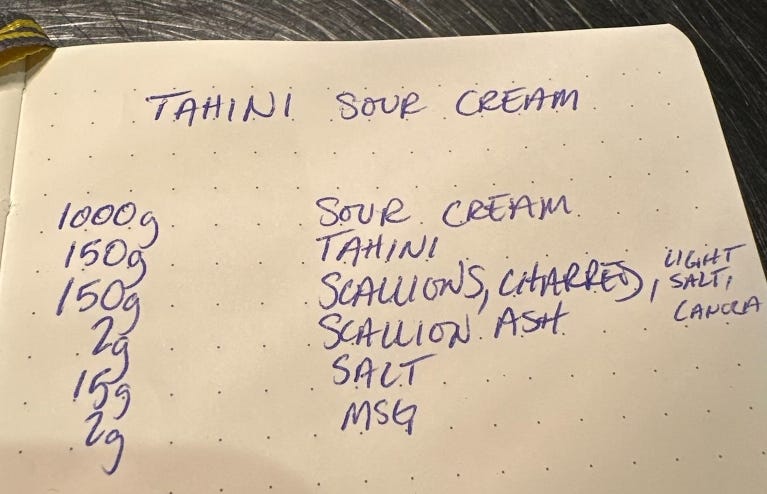 TAHINI SOUR CREAM
1000g SOUR CREAM
150g TAHINI
150g SCALLIONS, CHARRED, LIGHT SALT, CANOLA
2g SCALLION ASH
15g SALT
2g MSG